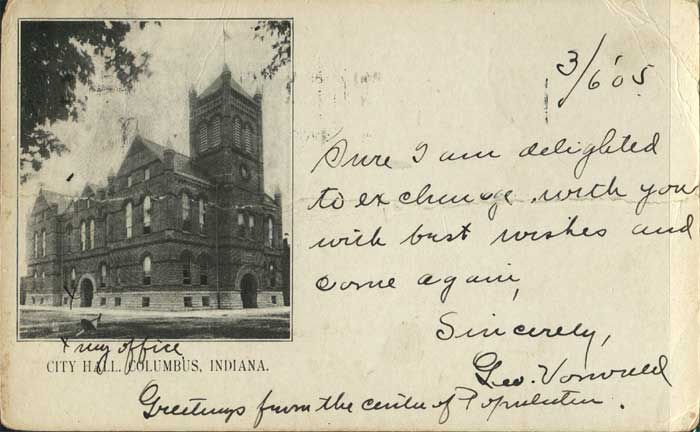 3/6 '05
Sure I am delighted
to exchange with you
with best wishes and
come again,
Sincerely,
Geo.
x my office
CITY HALL. COLUMBUS, INDIANA.
Greetings from the center of Population.